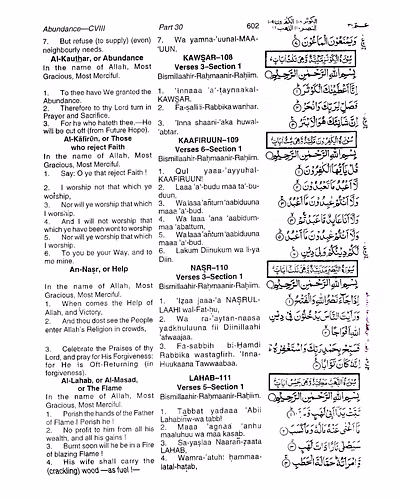 Abundance—CVIII
Part 30
602
7. But refuse (to supply) (even)
neighbourly needs.
Al-Kauthar, or Abundance
In the name of Allah, Most
Gracious, Most Merciful.
1. To thee have We granted the
Abundance.
2. Therefore to thy Lord turn in
Prayer and Sacrifice.
3. For he who hateth thee,—He
will be cut off (from Future Hope).
Al-Kāfirūn, or Those
who reject Faith
In the name of Allah, Most
Gracious, Most Merciful.
1. Say: O ye that reject Faith!
2. I worship not that which ye
worship,
3. Nor will ye worship that which
I worship.
4. And I will not worship that
which ye have been wont to worship
5. Nor will ye worship that which
I worship.
6. To you be your Way, and to
me mine.
An-Naṣr, or Help
In the name of Allah, Most
Gracious, Most Merciful.
1. When comes the Help of
Allah, and Victory,
2. And thou dost see the People
enter Allah's Religion in crowds,
3. Celebrate the Praises of thy
Lord, and pray for His Forgiveness:
for He is Oft-Returning (in
forgiveness).
Al-Lahab, or Al-Masad,
or The Flame
In the name of Allah, Most
Gracious, Most Merciful.
1. Perish the hands of the Father
of Flame! Perish he!
2. No profit to him from all his
wealth, and all his gains!
3. Burnt soon will he be in a Fire
of blazing Flame!
4. His wife shall carry the
(crackling) wood —as fuel!—
7. Wa yamna-'uunal-MAA-
'UUN.
KAWṢAR–108
Verses 3–Section 1
Bismillaahir-Raḥmaanir-Raḥiim.
1. 'Innaaa 'a'-ṭaynaakal-
KAWṢAR.
2. Fa-ṣalli li-Rabbika wanḥar.
3. 'Inna shaani-'aka huwal-
'abtar.
KAAFIRUUN–109
Verses 6–Section 1
Bismillaahir-Raḥmaanir-Raḥiim.
1. Qul yaaa-'ayyuhal-
KAAFIRUUN!
2. Laaa 'a'-budu maa ta'-bu-
duun,
3. Wa laaa 'antum 'aabiduuna
maaa 'a'-bud.
4. Wa laaa 'ana 'aabidum-
maa 'abattum,
5. Wa laaa 'antum 'aabiduuna
maaa 'a'-bud.
6. Lakum Diinukum wa li-ya
Diin.
NAṢR–110
Verses 3–Section 1
Bismillaahir-Raḥmaanir-Raḥiim.
1. 'Izaa jaaa-'a NAṢRUL-
LAAHI wal-Fat-ḥu,
2. Wa ra-'aytan-naasa
yadkhuluuna fii Diinillaahi
'afwaajaa.
3. Fa-sabbiḥ bi-Ḥamdi
Rabbika wastagfirh. 'Inna-
Huukaana Tawwaabaa.
LAHAB–111
Verses 5–Section 1
Bismillaahir-Raḥmaanir-Raḥiim.
1. Tabbat yadaaa 'Abii
Lahabinw-wa tabb!
2. Maaa 'agnaa 'anhu
maaluhuu wa maa kasab.
3. Sa-yaṣlaa Naaran-zaata
LAHAB,
4. Wamra-'atuh: ḥammaa-
latal-ḥaṭab,
وَيَمْنَعُونَ الْمَاعُونَ
بِسْمِ اللهِ الرَّحْمٰنِ الرَّحِيْمِ
إِنَّا أَعْطَيْنٰكَ الْكَوْثَرَ
فَصَلِّ لِرَبِّكَ وَانْحَرْ
إِنَّ شَانِئَكَ هُوَ الْأَبْتَرُ
بِسْمِ اللهِ الرَّحْمٰنِ الرَّحِيْمِ
قُلْ يٰٓأَيُّهَا الْكٰفِرُونَ
لَآ أَعْبُدُ مَا تَعْبُدُونَ
وَلَآ أَنْتُمْ عٰبِدُونَ مَآ أَعْبُدُ
وَلَآ أَنَا عَابِدٌ مَّا عَبَدْتُّمْ
وَلَآ أَنْتُمْ عٰبِدُونَ مَآ أَعْبُدُ
لَكُمْ دِينُكُمْ وَلِيَ دِينِ
بِسْمِ اللهِ الرَّحْمٰنِ الرَّحِيْمِ
إِذَا جَآءَ نَصْرُ اللهِ وَالْفَتْحُ
وَرَأَيْتَ النَّاسَ يَدْخُلُونَ فِي دِينِ
اللهِ أَفْوَاجًا
فَسَبِّحْ بِحَمْدِ رَبِّكَ وَاسْتَغْفِرْهُ
إِنَّهُ كَانَ تَوَّابًا
بِسْمِ اللهِ الرَّحْمٰنِ الرَّحِيْمِ
تَبَّتْ يَدَآ أَبِي لَهَبٍ وَّتَبَّ
مَآ أَغْنٰى عَنْهُ مَالُهُ وَمَا كَسَبَ
سَيَصْلٰى نَارًا ذَاتَ لَهَبٍ
وَّامْرَأَتُهُ حَمَّالَةَ الْحَطَبِ